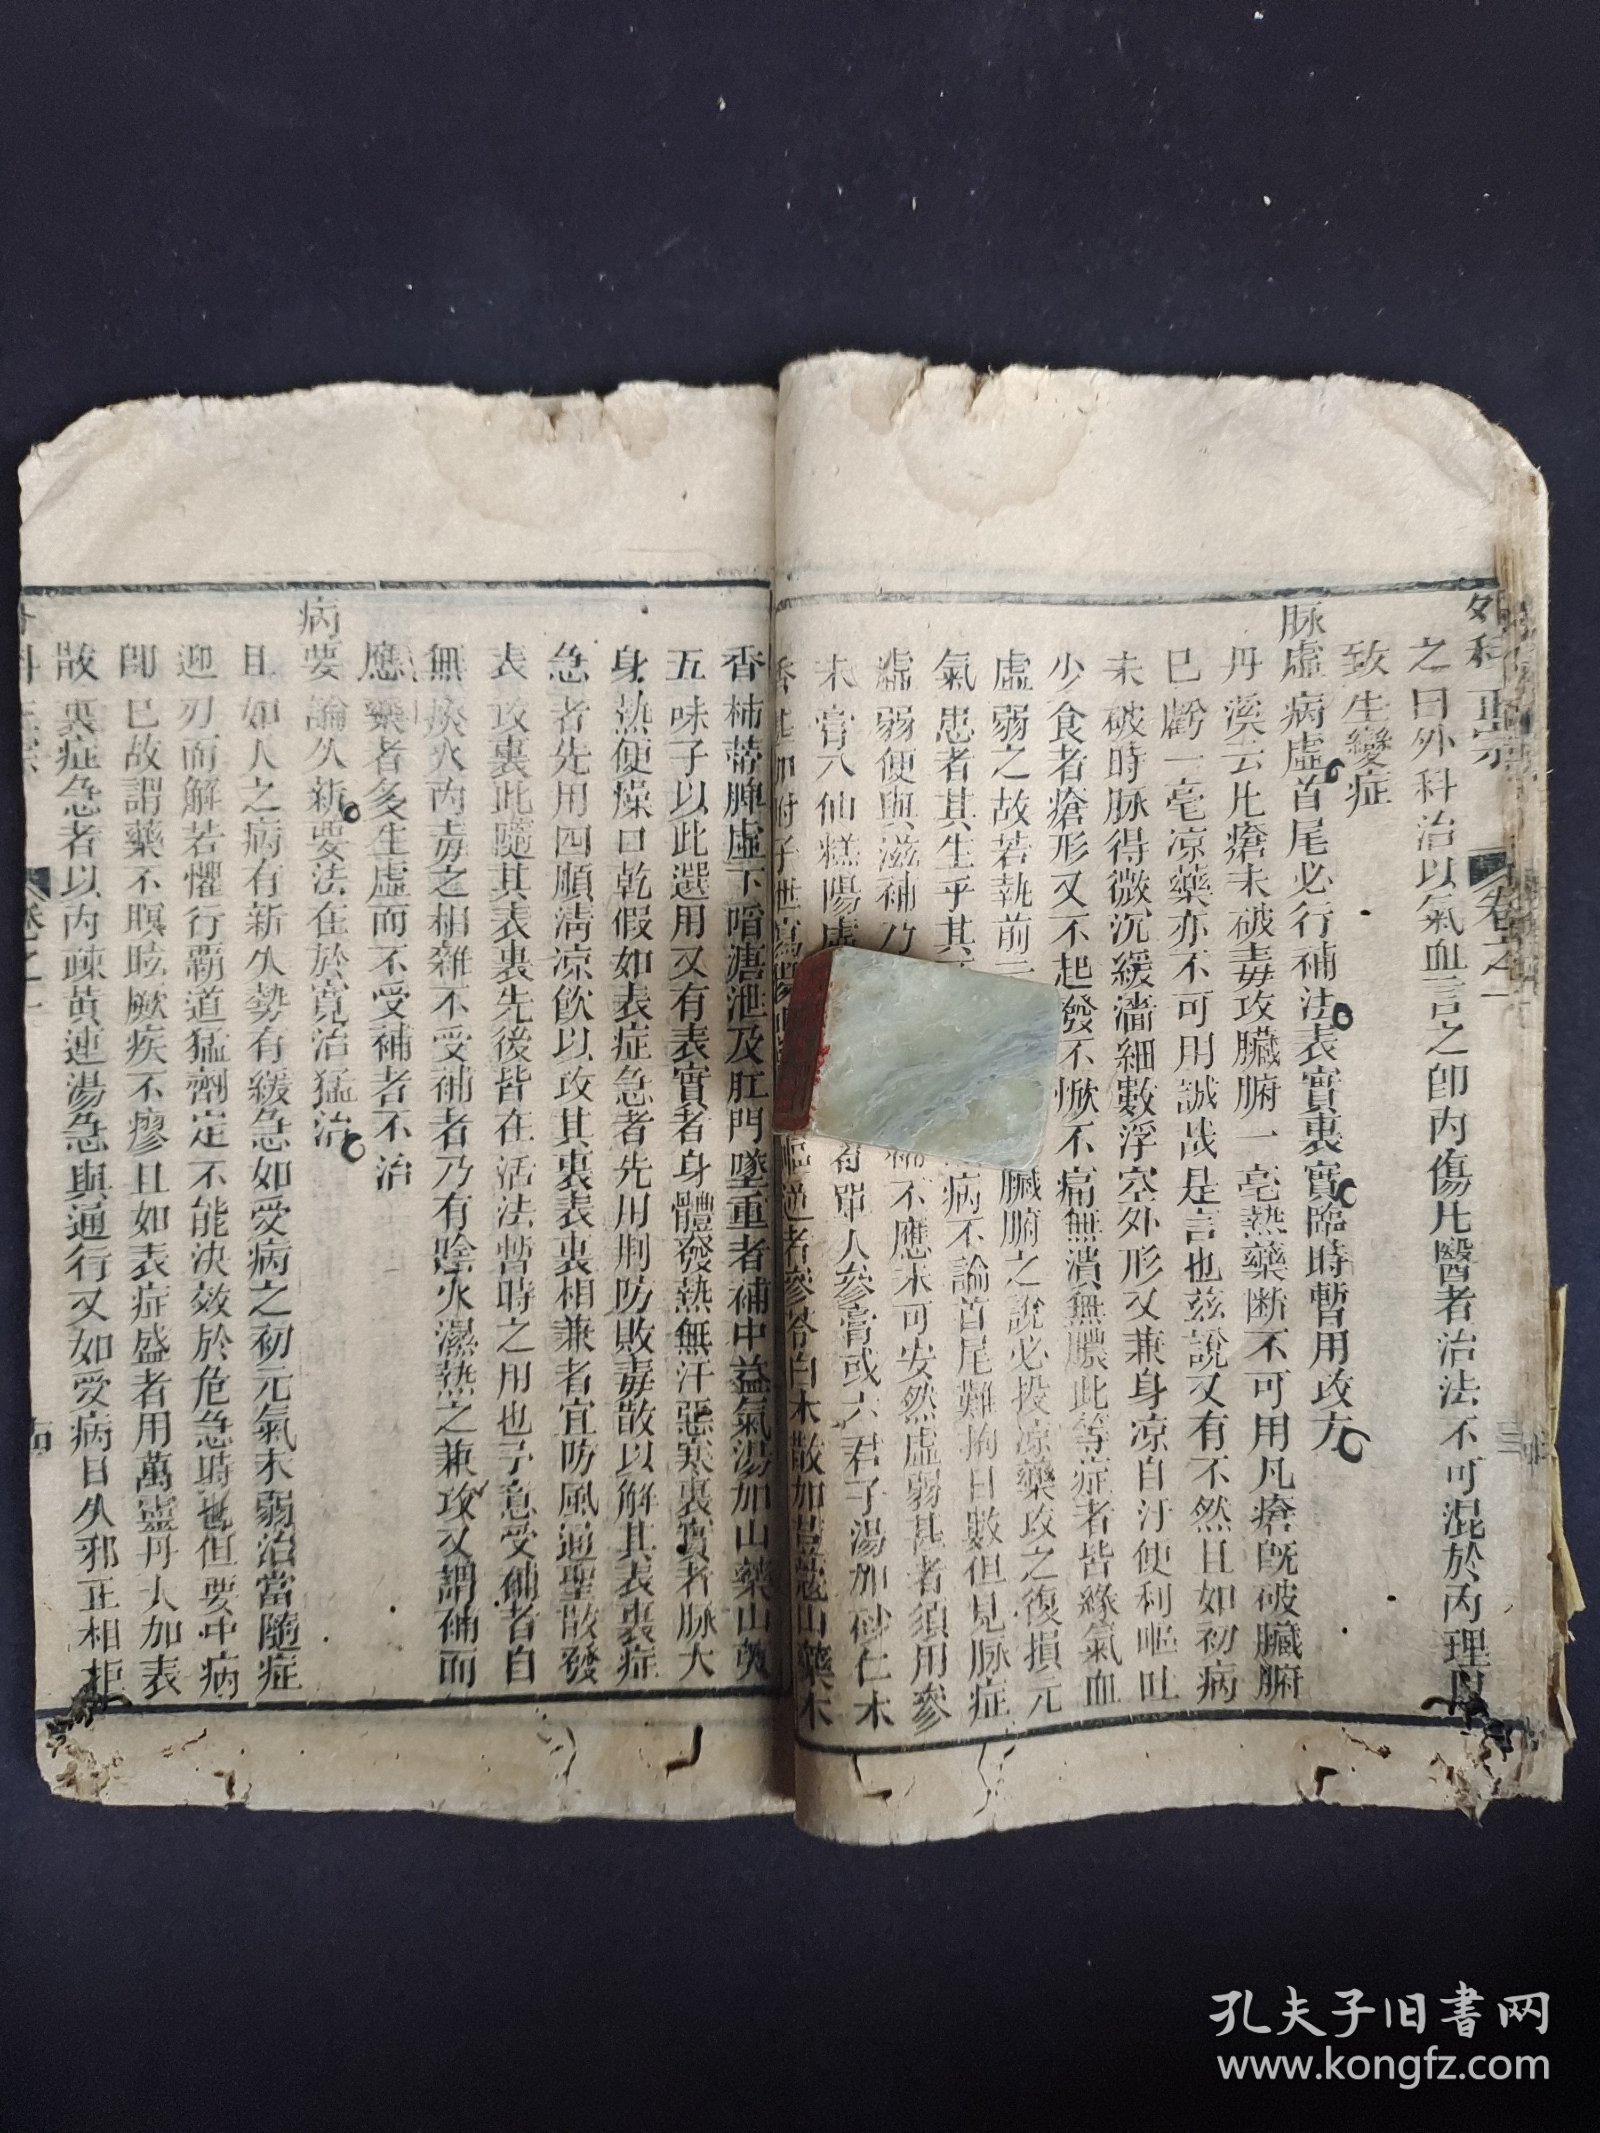 外科正宗
卷之一
之曰外科治以氣血言之卽內傷凡醫者治法不可混於丙理
致生變症
脉虛病虛首尾必行補法表實裏實臨時暫用攻方
丹溪云凡瘡未破毒攻臟腑一毫熱藥断不可用凡瘡旣破臟腑
已虧一毫凉藥亦不可用誠哉是言也兹說又有不然且如初病
未破時脉得微沉緩濇細數浮空外形又兼身凉自汗便利嘔吐
少食者瘡形又不起發不焮不痛無潰無膿此等症者皆緣氣血
虛弱之故若執前三 臟腑之說必投凉藥攻之復損元
氣患者其生乎其 病不論首尾難拘日數但見脉症
虛弱便與滋補乃 不應未可安然虛弱甚者須用參
术膏八仙糕陽虛 單人參膏或六君子湯加砂仁木
香 逆者參苓白术散加荳蔻山藥木
香柿蒂脾虛下陷溏泄及肛門墜重者補中益氣湯加山藥山萸
五味子以此選用又有表實者身體發熱無汗惡寒裏實者脉大
身熱便燥口乾假如表症急者先用荆防敗毒散以解其表裏症
急者先用四順清凉飲以攻其裏表裏相兼者宜防風通聖散發
表攻裏此隨其表裏先後皆在活法暫時之用也予急受補者自
無痰火丙毒之相雜不受補者乃有陰火濕熱之兼攻又謂補而
應藥者多生虛而不受補者不治
病要論久新要法在於寛治猛治
且如人之病有新久勢有緩急如受病之初元氣未弱治當隨症
迎刃而解若懼行覇道猛劑定不能決效於危急時也但要中病
卽已故謂藥不瞑眩厥疾不瘳且如表症盛者用萬靈丹大加表
散裏症急者以內疎黃連湯急與通行又如受病日久邪正相拒
孔夫子旧书网
www.kongfz.com